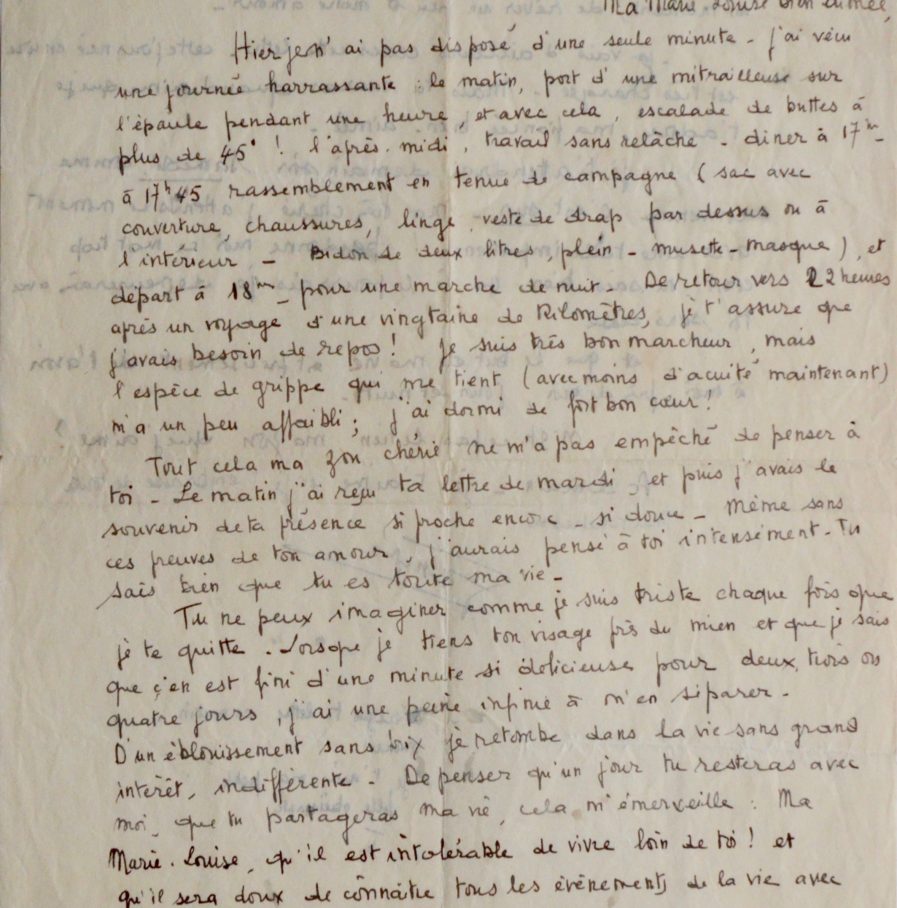 Ma Marie-Louise bien aimée,
Hier je n'ai pas disposé d'une seule minute - j'ai vécu
une journée harrassante : le matin, port d'une mitrailleuse sur
l'épaule pendant une heure, et avec cela, escalade de buttes à
plus de 45° ! l'après-midi, travail sans relâche - dîner à 17h -
à 17h45 rassemblement en tenue de campagne (sac avec
couverture, chaussures, linge, veste de drap par dessus ou à
l'intérieur - Bidon de deux litres, plein - musette - masque), et
départ à 18h - pour une marche de nuit - De retour vers 22 heures
après un voyage d'une vingtaine de Kilomètres, je t'assure que
j'avais besoin de repos ! Je suis très bon marcheur, mais
l'espèce de grippe qui me tient (avec moins d'acuité maintenant)
m'a un peu affaibli ; j'ai dormi de fort bon cœur !
Tout cela ma Zon chérie ne m'a pas empêché de penser à
toi - Le matin j'ai reçu ta lettre de mardi, et puis j'avais le
souvenir de ta présence si proche encore - si douce - Même sans
ces preuves de ton amour, j'aurais pensé à toi intensément - Tu
sais bien que tu es toute ma vie -
Tu ne peux imaginer comme je suis triste chaque fois que
je te quitte. Lorsque je tiens ton visage près du mien et que je sais
que ç'en est fini d'une minute si délicieuse pour deux, trois ou
quatre jours, j'ai une peine infinie à m'en séparer -
D'un éblouissement sans prix je retombe dans la vie sans grand
intérêt, indifférente - De penser qu'un jour tu resteras avec
moi, que tu partageras ma vie, cela m'émerveille : Ma
Marie-Louise, qu'il est intolérable de vivre loin de toi ! et
qu'il sera doux de connaître tous les évènements de la vie avec